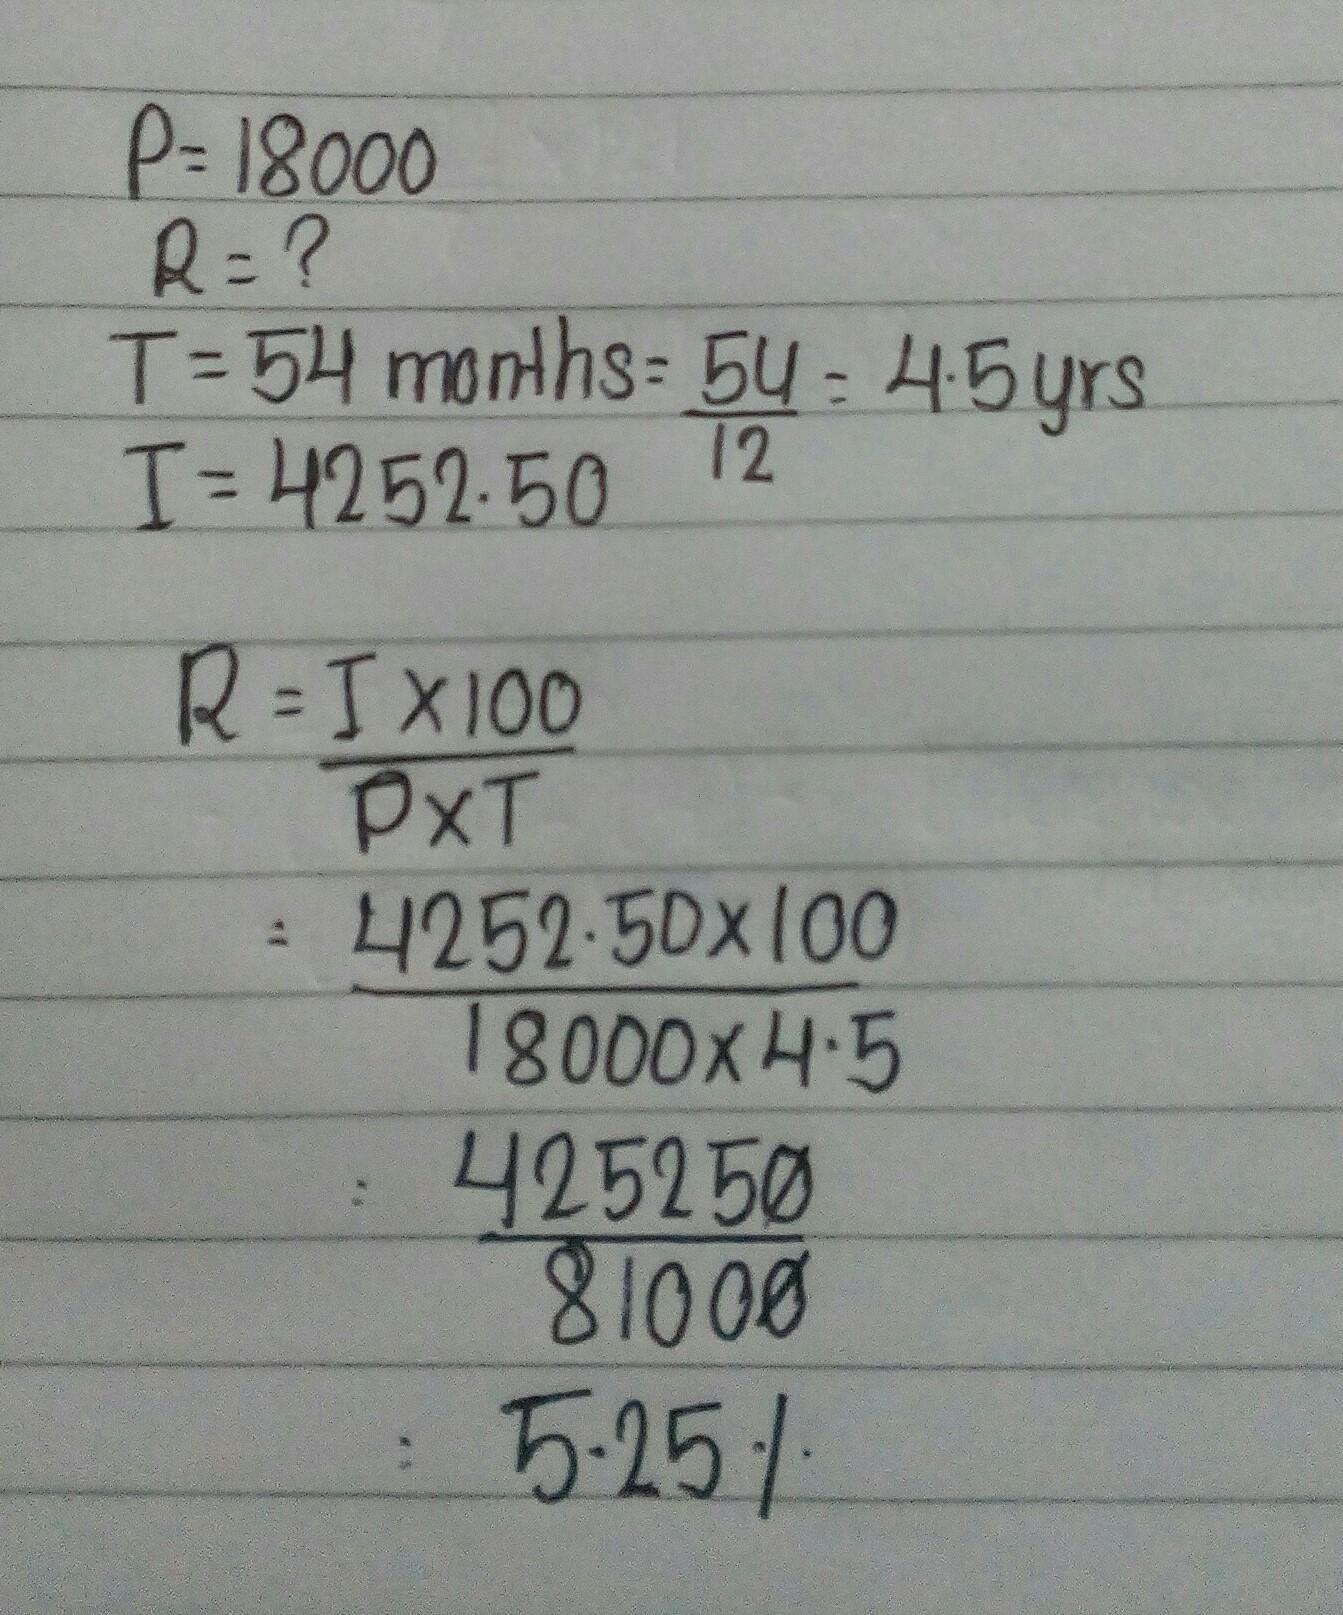 P= 18000
R = ?
T = 54 months = 54/12 = 4.5 yrs
I = 4252.50
R = I × 100
P × T
= 4252.50 × 100
18000 × 4.5
= 425250
81000
= 5.25 %